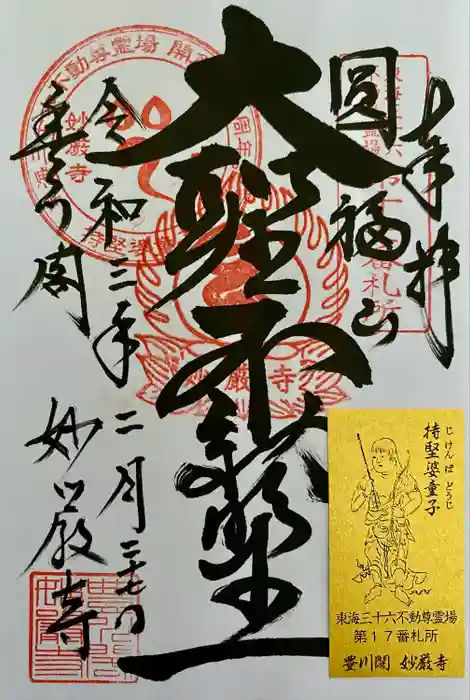 奉拝
圓福山
大聖不動尊
令和三年二月二十七日
豊川閣
妙厳寺
不動尊霊場
妙厳寺
妙厳寺
持堅婆童子
じけんばどうじ
東海三十六不動尊霊場
第17番札所
豊川閣 妙厳寺